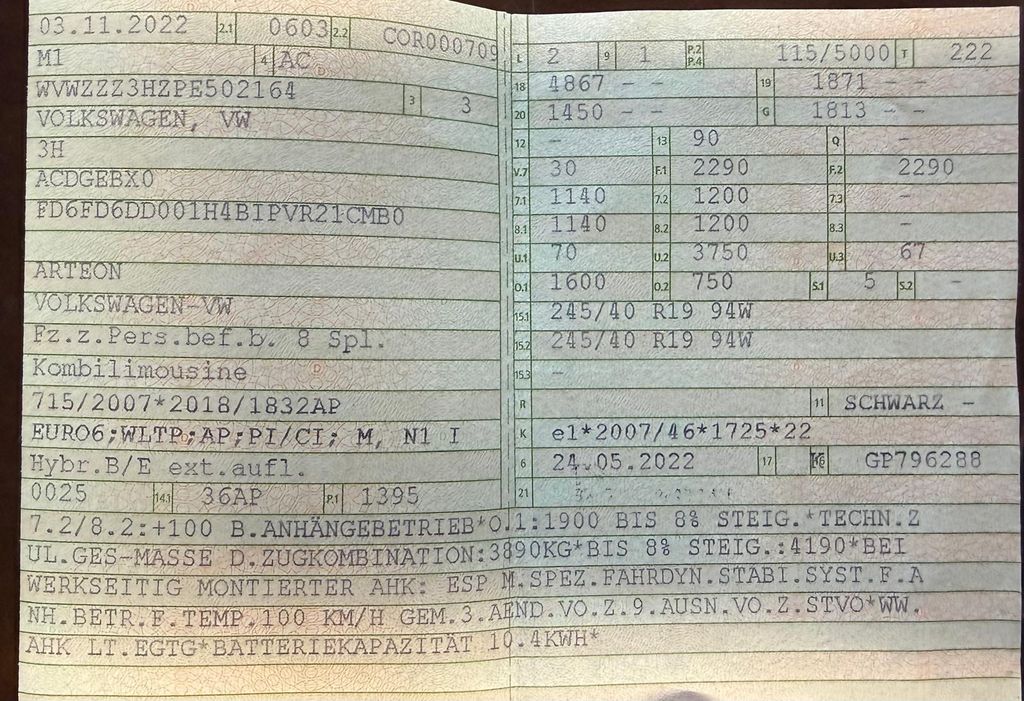 03.11.2022 2.1 0603 2.2 COR000709
M1 4 AC
WVWZZZ3HZPE502164 3 3
VOLKSWAGEN, VW
3H
ACDGEBX0
FD6FD6DD001H4BIPVR21CMB0
ARTEON
VOLKSWAGEN-VW
Fz.z.Pers.bef.b. 8 Spl.
Kombilimousine
715/2007*2018/1832AP
EURO6;WLTP;AP;PI/CI; M, N1 I
Hybr.B/E ext.aufl.
0025 14.1 36AP P.1 1395
L 2 9 1 P.2 P.4 115/5000 T 222
18 4867 - - 19 1871 - -
20 1450 - - G 1813 - -
12 - 13 90 Q -
V.7 30 F.1 2290 F.2 2290
7.1 1140 7.2 1200 7.3 -
8.1 1140 8.2 1200 8.3 -
U.1 70 U.2 3750 U.3 67
O.1 1600 O.2 750 S.1 5 S.2 -
15.1 245/40 R19 94W
15.2 245/40 R19 94W
15.3 -
R 11 SCHWARZ -
K e1*2007/46*1725*22
6 24.05.2022 17 K 16 GP796288
21
7.2/8.2:+100 B.ANHÄNGEBETRIEB*O.1:1900 BIS 8% STEIG.*TECHN.Z
UL.GES-MASSE D.ZUGKOMBINATION:3890KG*BIS 8% STEIG.:4190*BEI
WERKSEITIG MONTIERTER AHK: ESP M.SPEZ.FAHRDYN.STABI.SYST.F.A
NH.BETR.F.TEMP.100 KM/H GEM.3.AEND.VO.Z.9.AUSN.VO.Z.STVO*WW.
AHK LT.EGTG*BATTERIEKAPAZITÄT 10.4KWH*